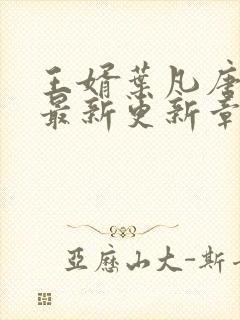 王婿葉凡唐
最新更新章
亞歷山大-斯